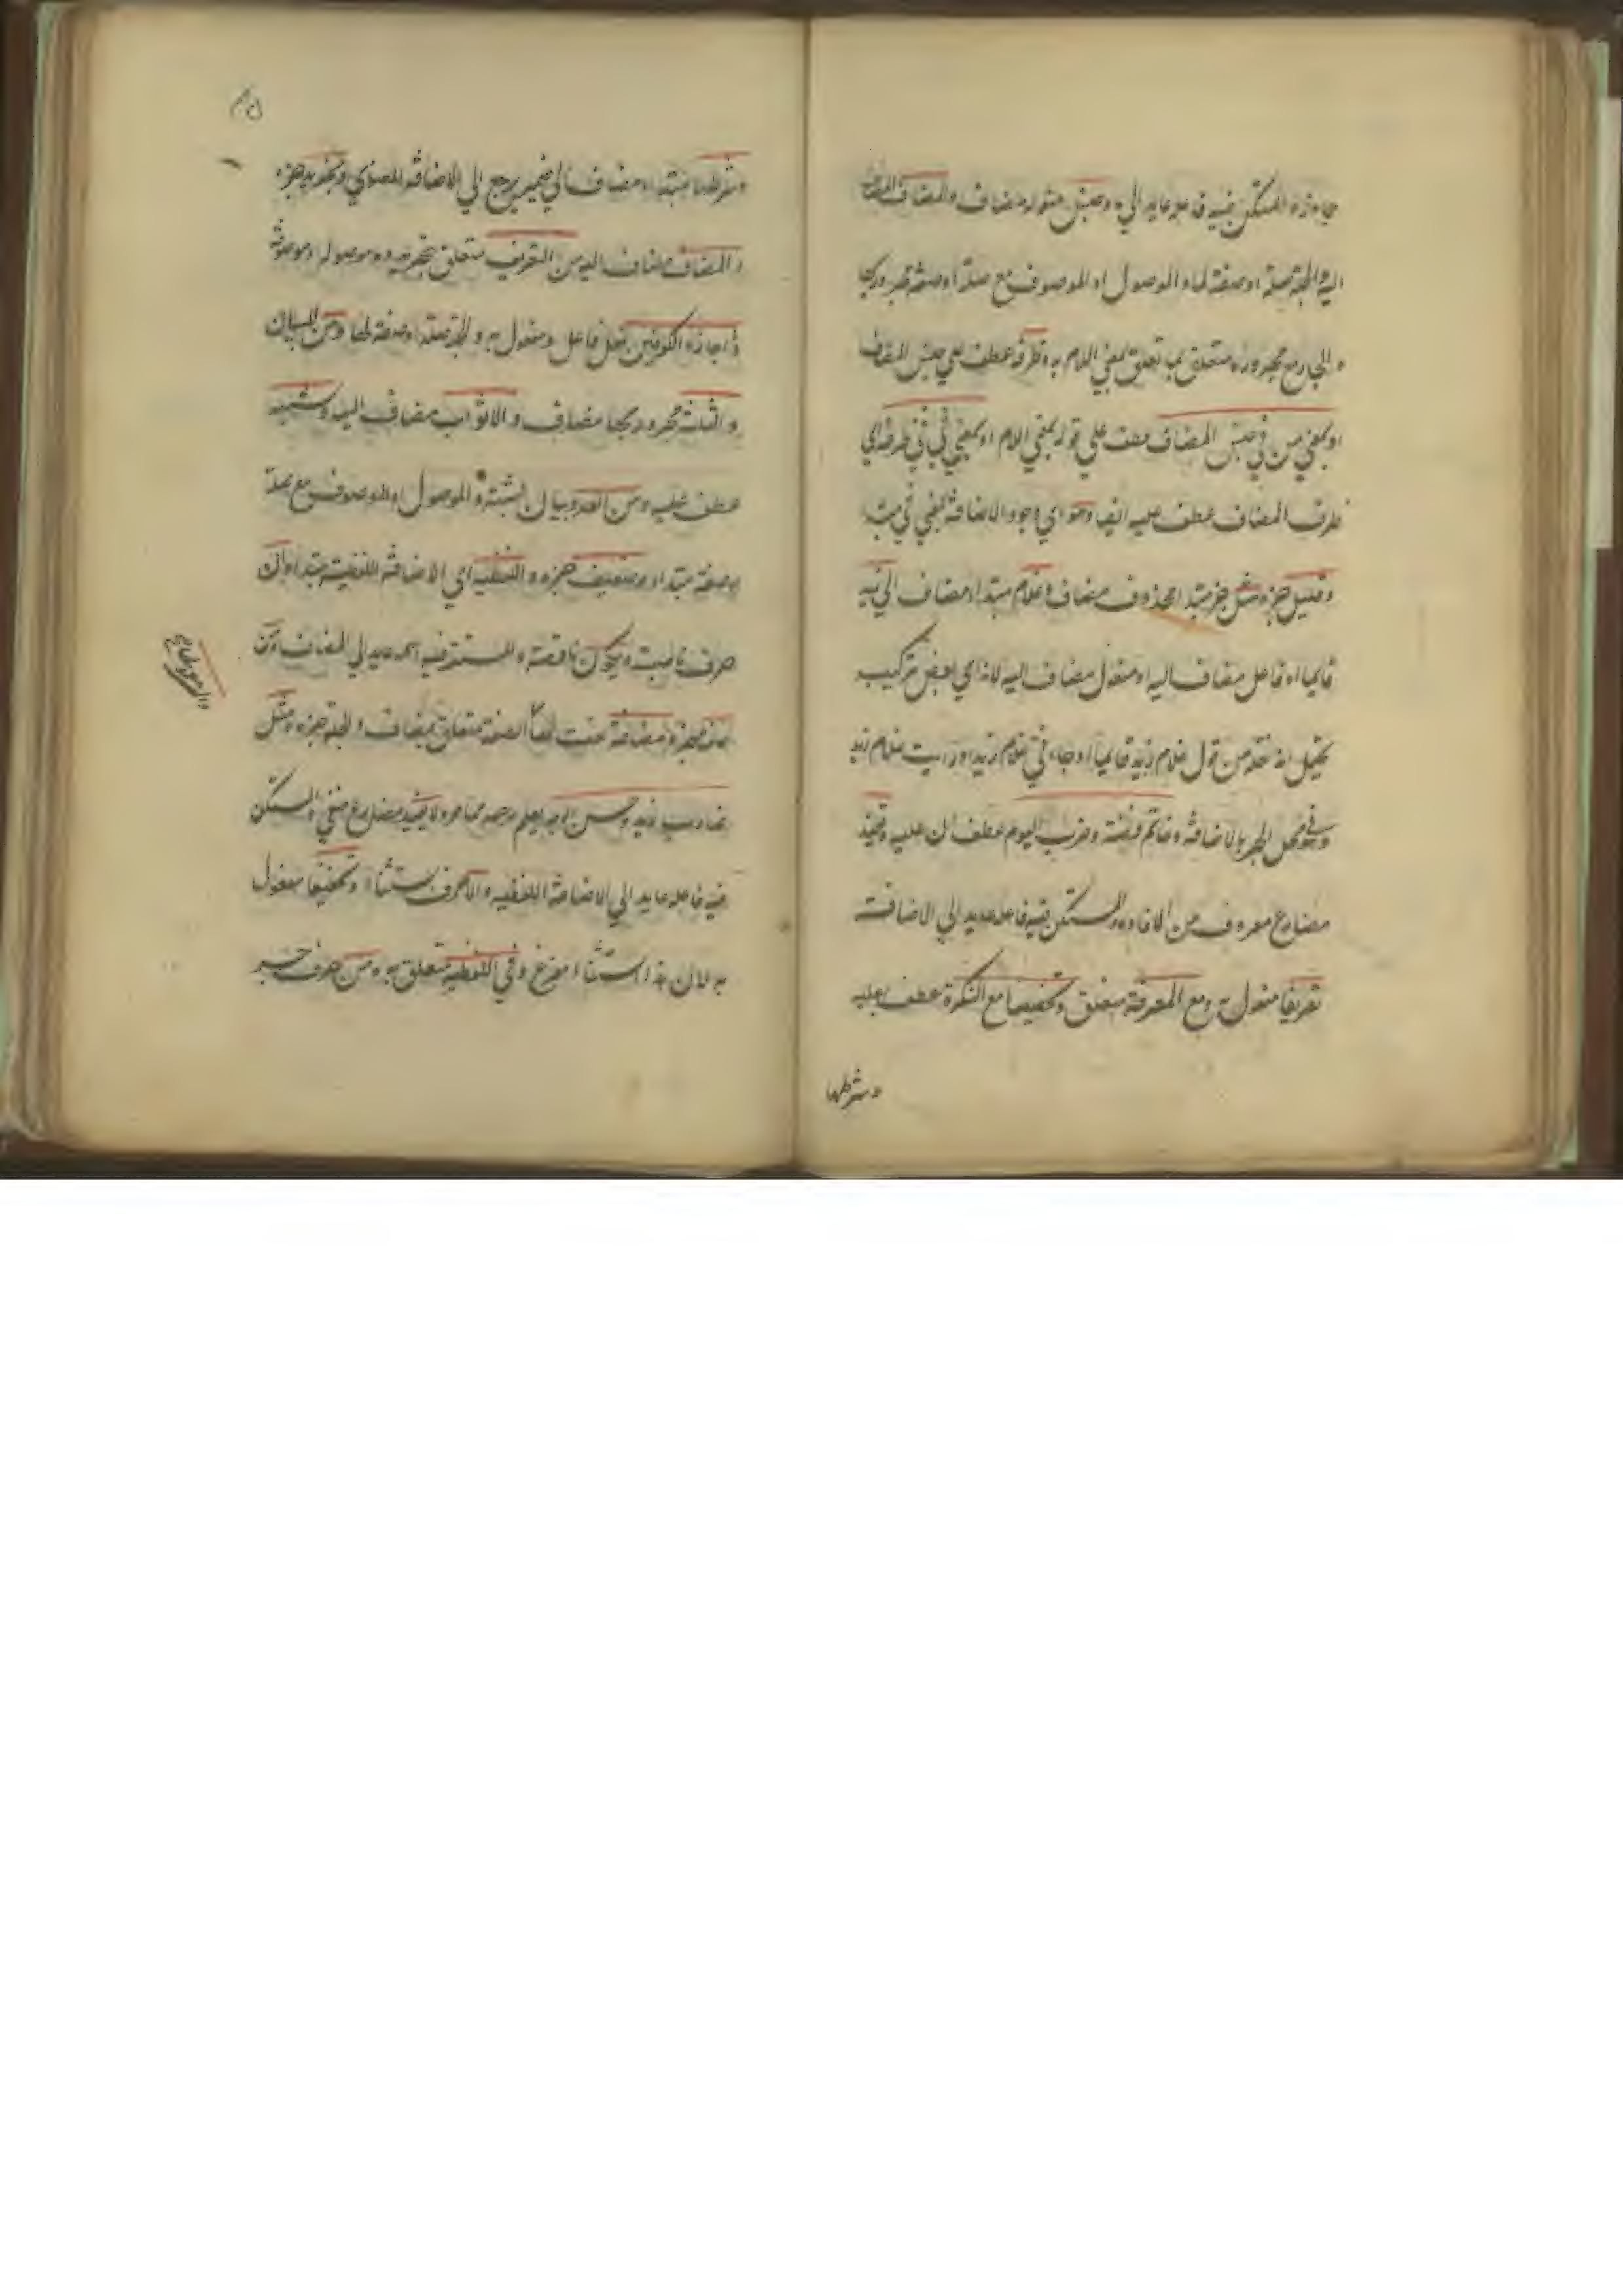 والمستكن فيه فاعله عايد الي ما وجنس مفعوله مضاف والمضاف مضاف
اليه والجملة صلة او صفة لما والموصول او الموصوف مع صلة او صفة مجرور بها
والجار مع مجروره متعلق بمعني اللام وظرفه عطف علي جنس المضاف
او بمعني من في جنس المضاف عطف علي قوله بمعني اللام او بمعني في في ظرفه اي
ظرف المضاف عطف عليه ايضا وهو اي وجود الاضافة بمعني في مبتدا
وقليل خبره مثل خبر مبتدا محذوف مضاف وغلام مبتدا مضاف الي زيد
قايما او فاعل مضاف اليه او مفعول مضاف اليه لانه اي بعض تركيب
يحتمل انه نقله من قول غلام زيد قايما او جاءني غلام زيد او رايت غلام زيد
وهو في محل الجر بالاضافة وخاتم فضة وضرب اليوم عطفان عليه وتفيد
مضارع معروف من الافادة والمستكن فيه فاعله عايد الي الاضافة
تعريفا مفعول به ومع المعرفة متعلق وتخصيصا مع النكرة عطف عليه
وشرطها
وشرطها مبتداء ومضاف الي ضمير يرجع الي الاضافة المعنوي وتجريد خبره
والمضاف مضاف اليه من التعريف متعلق بتجريد وما موصوله او موصوفة
واجازه الكوفيون فعل فاعل ومفعول به والجملة صلة او صفة لها ومن للبيان
والثلثة مجرور بها مضاف والاثواب مضاف اليه وشبهه
عطف عليه ومن العدد بيان لشبهه والموصول او الموصوف مع صلة
او صفة مبتداء وضعيف خبره واللفظية اي الاضافة اللفظية مبتدا وان
حرف ناصبة ويكون ناقصة والمستتر فيه اسمه عايد الي المضاف وصفة
خبره ومضافة صفت الصفة متعلق بمضاف والجملة خبره ومثل
ضارب زيد وحسن الوجه يعلم وجهه مما مر ولا يفيد مضارع منفي والمستكن
فيه فاعله عايد الي الاضافة اللفظيه والا حرف استثناء وتخفيفا مفعول
به لان هذا استثناء مفرغ وفي اللفظ متعلق به ومن حرف جر